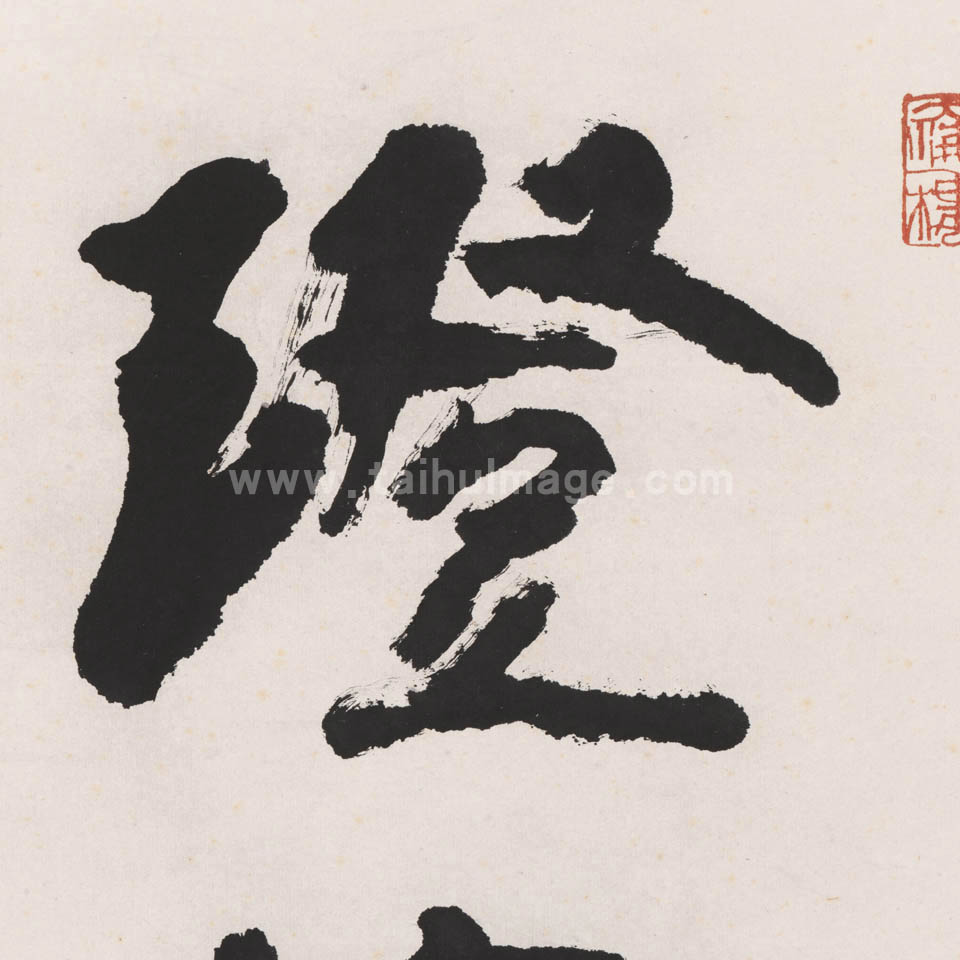 澄
www.taihuimage.com